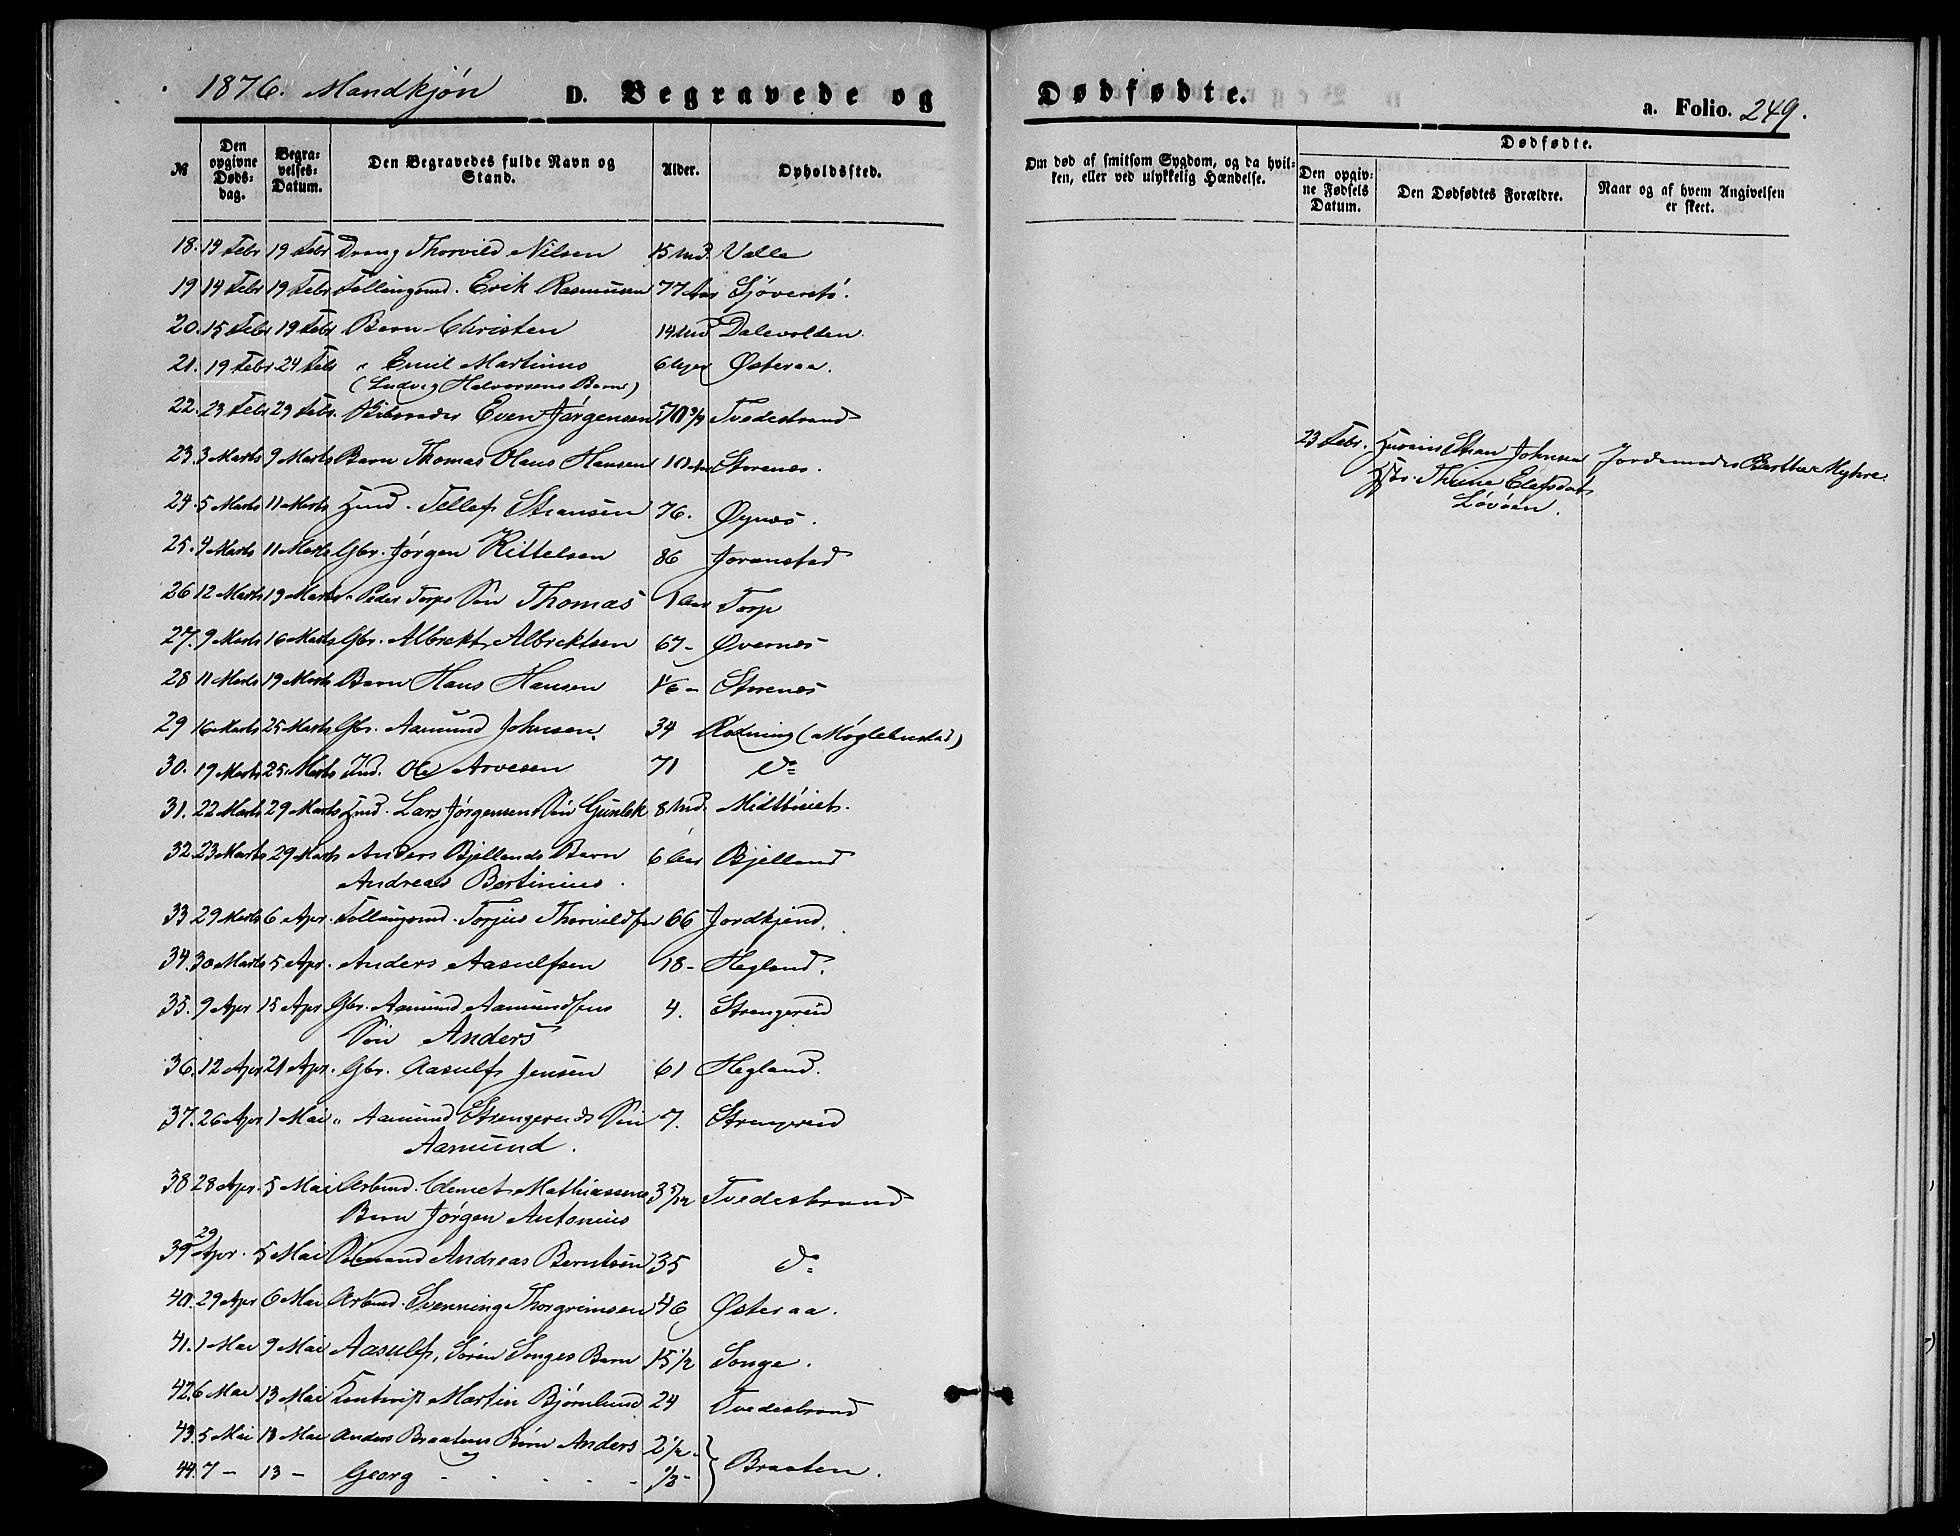 1876. Mandkjøn
D. Begravede og
Dødfødte.
a. Folio. 249.
№
Den opgivne Døds-dag.
Begra-velses-Datum.
Den Begravedes fulde Navn og Stand.
Alder.
Opholdssted.
Om død af smitsom Sygdom, og da hvil-ken, eller ved ulykkelig Hændelse.
Dødfødte.
Den opgiv-ne Fødsels Datum.
Den Dødfødtes Forældre.
Naar og af hvem Angivelsen er skeet.
18. 14 Febr 19 Febr Dreng Thorvild Nilsen 15 Md. Valle
19 14 Febr 19 Febr Føllaugsmd. Erik Rasmusen 77 Aar
20. 15 Febr 19 Febr Barn Christen 14 Md Dalevolden.
21. 19 Febr 24 Febr " Emil Martinius 6 Uger Østeraa.
(Ludvig Halvorsens Barn)
22. 23 Febr 29 Febr. Even Jørgensen Tvedestrand
23. 3 Marts 9 Marts Barn Thomas Olaus Hansen 10 Aar Storenes.
23 Febr. Johnsen Jordemoder Berthe Myhre.
Løvøen.
24. 5 Marts 11 Marts Hmd. Tellef 76. Øynes.
25. 4 Marts 11 Marts Gbr. Jørgen Kittelsen 86 Joranstad
26 12 Marts 19 Marts " Peder Torps Søn Thomas 1 Aar Torp
27. 9 Marts 16 Marts Gbr. Albrekt Albrektsen 67 - Øvernes
28 11 Marts 19 Marts Barn Hans Hansen Storenes
29 16 Marts 25 Marts Gbr. Aamund Johnsen. 34
30. 19 Marts 25 Marts Ind. Ole Arvesen 71 do
31. 22 Marts 29 Marts Hmd. Lars Jørgensens Søn Gunlek 8 Md. Midtbøiet.
32. 23 Marts 29 Marts Anders Bjellands Barn 6 Aar Bjelland
Andreas Bertinius.
33 29 Marts 6 Apr. Føllaugsmd. Torjus Thorvildsen 66 Jordkjend.
34. 30 Marts 5 Apr. Anders Aasulfsen 18 - Hegland.
35. 9 Apr 15 Apr Gbr. Aamund Aamundsens 4. Strengereid
Søn Anders
36. 12 Apr 21 Apr. Gbr. Aasulf Jensen 61 Hegland.
37. 26 Apr 1 Mai " Aamund Strengereids Søn 7. Strengereid
Aamund.
38 28 Apr. 5 Mai Arbmd. Clemet Mathiassens 3 5/12 Tvedestrand
Barn Jørgen Antonius
39 29 Apr. 5 Mai Andreas Berntsen 35 do
40. 29 Apr 6 Mai Arbmd. Svenning Thorgrimsen 46 Østeraa.
41. 1 Mai 9 Mai Aasulf, Søren Songes Barn 15 1/2 Songe.
42. 6 Mai 13 Mai Martin Bjørnlund 24 Tvedestrand
43. 5 Mai 13 Mai Anders Braatens Børn Anders 2 1/2 Braaten.
og
44. 7 - 13 - Georg - - - - - 1/2 -